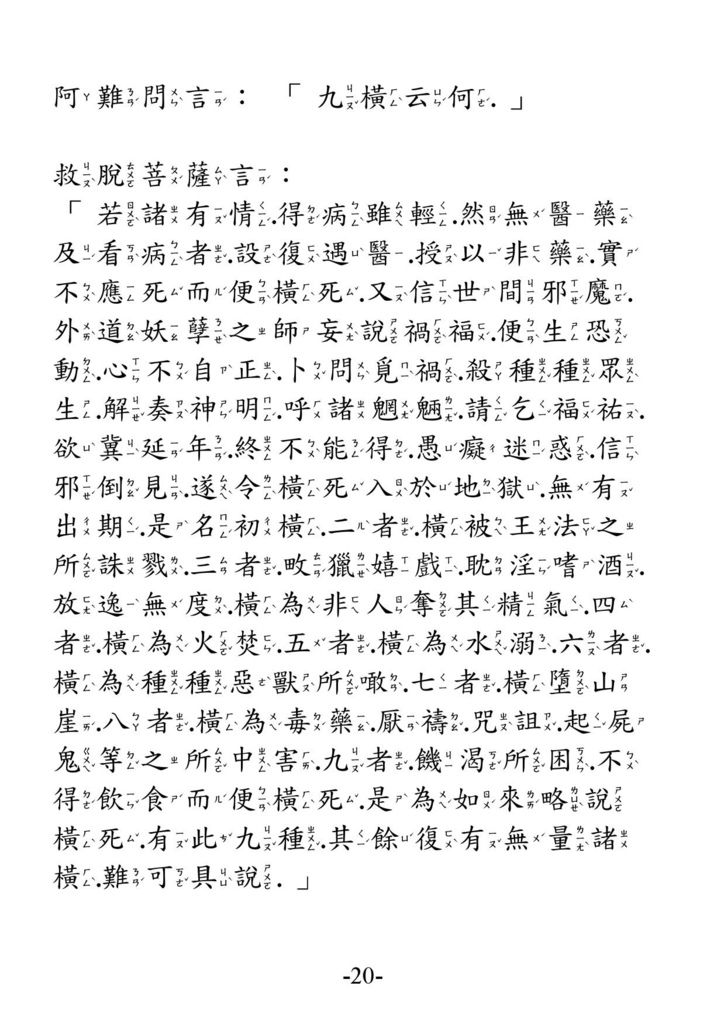 阿難問言：「九橫云何.」
救脫菩薩言：
「若諸有情.得病雖輕.然無醫藥
及看病者.設復遇醫.授以非藥.實
不應死而便橫死.又信世間邪魔.
外道妖孽之師妄說禍福.便生恐
動.心不自正.卜問覓禍.殺種種眾
生.解奏神明.呼諸魍魎.請乞福祐.
欲冀延年.終不能得.愚癡迷惑.信
邪倒見.遂令橫死入於地獄.無有
出期.是名初橫.二者.橫被王法之
所誅戮.三者.畋獵嬉戲.耽淫嗜酒.
放逸無度.橫為非人奪其精氣.四
者.橫為火焚.五者.橫為水溺.六者.
橫為種種惡獸所噉.七者.橫墮山
崖.八者.橫為毒藥.厭禱.咒詛.起屍
鬼等之所中害.九者.饑渴所困.不
得飲食而便橫死.是為如來略說
橫死.有此九種.其餘復有無量諸
橫.難可具說.」
-20-